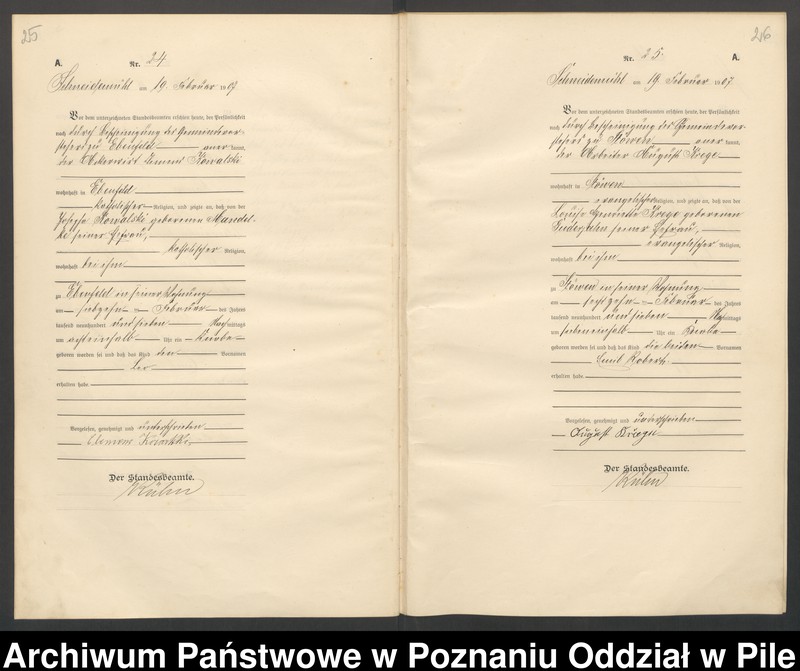 25
A.
Nr. 24
Schneidemühl am 19 Februar 1907
Vor dem unterzeichneten Standesbeamten erschien heute, der Persönlichkeit
nach durch Bescheinigung des Gemeindevor-
stehers zu Ebenfelde anerkannt,
der Ackerwirt Clemens Kowalski
wohnhaft in Ebenfeld
katholischer Religion, und zeigte an, daß von der
Josepha Kowalski geborenen Mandel-
ke seiner Ehefrau,
katholischer Religion,
wohnhaft bei ihm
zu Ebenfeld in seiner Wohnung
am siebzehn ten Februar des Jahres
tausend neunhundert und sieben Nachmittags
um achteinhalb Uhr ein Knabe
geboren worden sei und daß das Kind den Vornamen
Leo
erhalten habe.
Vorgelesen, genehmigt und unterschrieben
Clemens Kowalski
Der Standesbeamte.
Kühn
26
Nr. 25.
A.
Schneidemühl am 19 Februar 1907
Vor dem unterzeichneten Standesbeamten erschien heute, der Persönlichkeit
nach durch Bescheinigung des Gemeindevor-
stehers zu Stöwen anerkannt,
der Arbeiter August
wohnhaft in Stöwen
evangelischer Religion, und zeigte an, daß von der
Louise geborenen
seiner Ehefrau,
evangelischer Religion,
wohnhaft bei ihm
zu Stöwen in seiner Wohnung
am sechzehn ten Februar des Jahres
tausend neunhundert und sieben Nachmittags
um siebeneinhalb Uhr ein Knabe
geboren worden sei und daß das Kind die beiden Vornamen
Emil Robert
erhalten habe.
Vorgelesen, genehmigt und unterschrieben
August
Der Standesbeamte.
Kühn
Archiwum Państwowe w Poznaniu Oddział w Pile